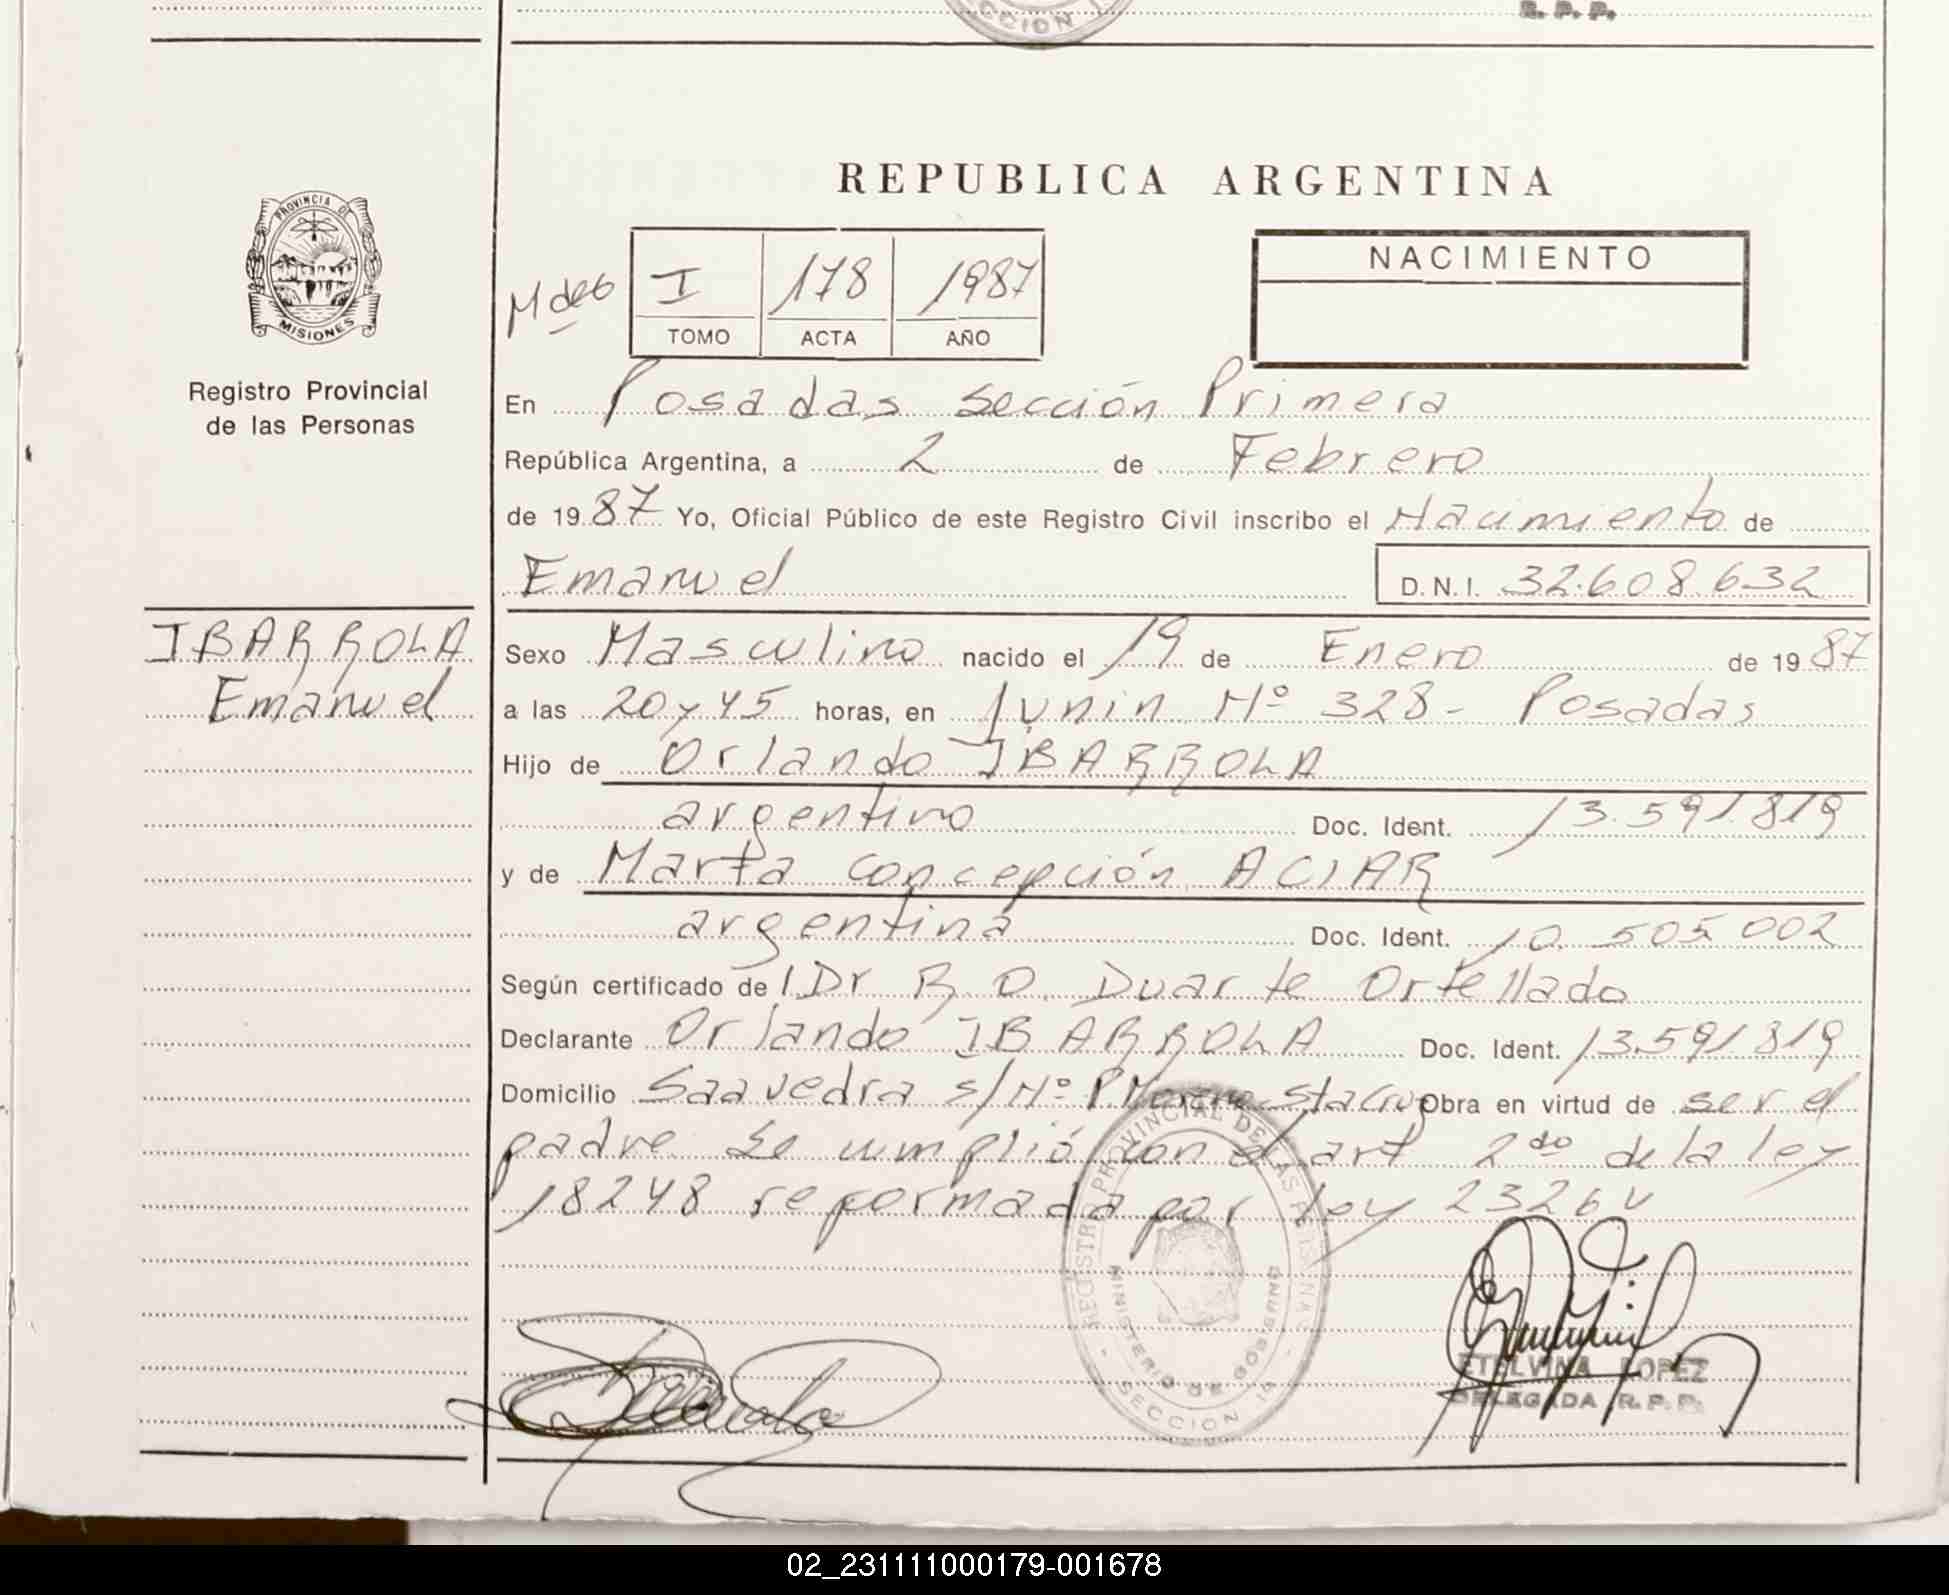 CCION 1
R. P. P.
REPUBLICA ARGENTINA
PROVINCIA DE
MISIONES
Registro Provincial
de las Personas
I 178 1987
TOMO ACTA AÑO
NACIMIENTO
En Posadas Sección Primera
República Argentina, a 2 de Febrero
de 1987 Yo, Oficial Público de este Registro Civil inscribo el Nacimiento de
Emanuel D.N.I. 32.608.632
IBARROLA
Emanuel
Sexo Masculino nacido el 19 de Enero de 1987
a las 20 y 45 horas, en Junin Nº 328 - Posadas
Hijo de Orlando IBARROLA
argentino Doc. Ident. 13.591.819
y de Marta Concepción ACIAR
argentina Doc. Ident. 10.505.002
Según certificado del Dr R. O. Duarte Ortellado
Declarante Orlando IBARROLA Doc. Ident. 13.591.819
Domicilio Saavedra s/Nº P Moreno Sta Cruz Obra en virtud de ser el
padre Se cumplió con el art 2do de la ley
18248 reformada por ley 23264
REGISTRO PROVINCIAL DE LAS PERSONAS
MINISTERIO DE GOBIERNO
SECCION 1a
ETELVINA LOPEZ
DELEGADA R. P. P.
02_231111000179-001678